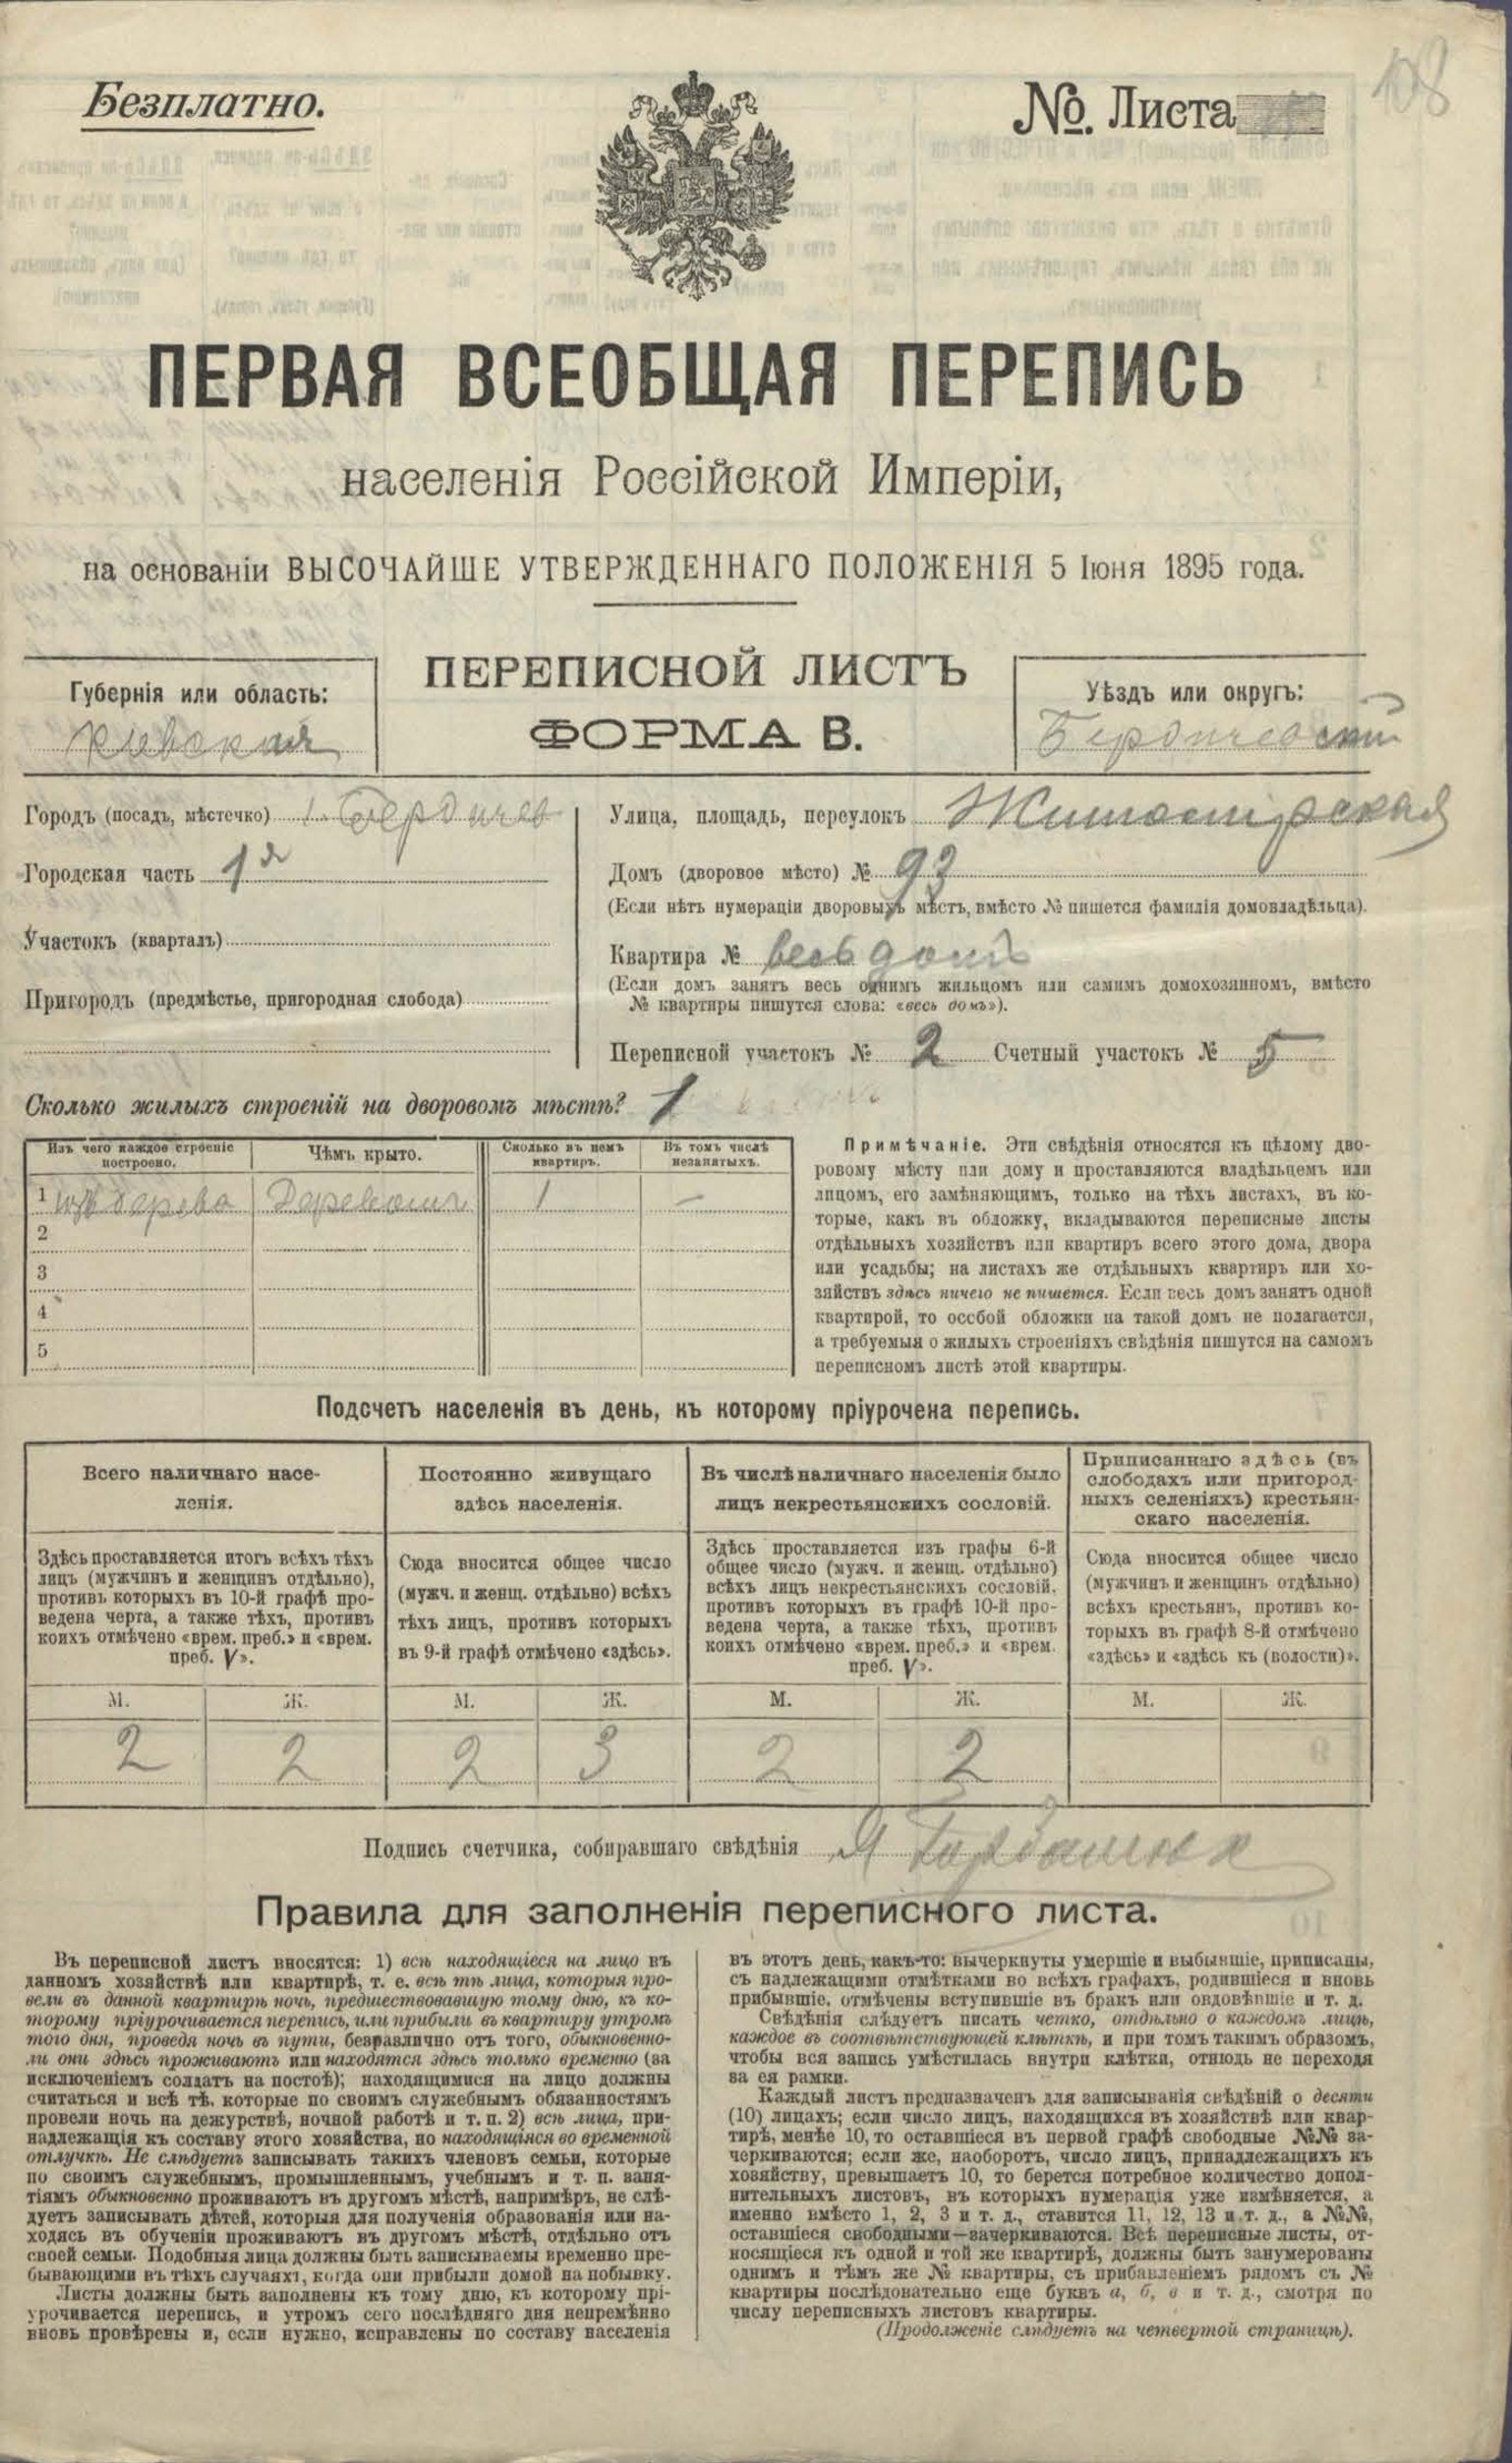 Безплатно.
№. Листа
108
ПЕРВАЯ ВСЕОБЩАЯ ПЕРЕПИСЬ
населенія Россійской Имперіи,
на основаніи ВЫСОЧАЙШЕ УТВЕРЖДЕННАГО ПОЛОЖЕНІЯ 5 Іюня 1895 года.
ПЕРЕПИСНОЙ ЛИСТЪ
ФОРМА В.
Губернія или область:
Кіевская
Уѣздъ или округъ:
Бердичевскій
Городъ (посадъ, мѣстечко) г. Бердичев
Городская часть 1я
Участокъ (кварталъ)
Пригородъ (предмѣстье, пригородная слобода)
Улица, площадь, переулокъ Житомірская
Домъ (дворовое мѣсто) № 93
(Если нѣтъ нумераціи дворовыхъ мѣстъ, вмѣсто № пишется фамилія домовладѣльца).
Квартира № весь домъ
(Если домъ занятъ весь однимъ жильцомъ или самимъ домохозяиномъ, вмѣсто
№ квартиры пишутся слова: «весь домъ»).
Переписной участокъ № 2 Счетный участокъ № 5
Сколько жилыхъ строеній на дворовомъ мѣстѣ? 1
Изъ чего каждое строеніе
построено.
Чѣмъ крыто.
Сколько въ немъ
квартиръ.
Въ томъ числѣ
незанятыхъ.
1 изъ дерева Деревомъ 1 —
2
3
4
5
Примѣчаніе. Эти свѣдѣнія относятся къ цѣлому дво-
ровому мѣсту или дому и проставляются владѣльцемъ или
лицомъ, его замѣняющимъ, только на тѣхъ листахъ, въ ко-
торые, какъ въ обложку, вкладываются переписные листы
отдѣльныхъ хозяйствъ или квартиръ всего этого дома, двора
или усадьбы; на листахъ же отдѣльныхъ квартиръ или хо-
зяйствъ здѣсь ничего не пишется. Если весь домъ занятъ одной
квартирой, то особой обложки на такой домъ не полагается,
а требуемыя о жилыхъ строеніяхъ свѣдѣнія пишутся на самомъ
переписномъ листѣ этой квартиры.
Подсчетъ населенія въ день, къ которому пріурочена перепись.
Всего наличнаго насе-
ленія.
Постоянно живущаго
здѣсь населенія.
Въ числѣ наличнаго населенія было
лицъ некрестьянскихъ сословій.
Приписаннаго здѣсь (въ
слободахъ или пригород-
ныхъ селеніяхъ) крестьян-
скаго населенія.
Здѣсь проставляется итогъ всѣхъ тѣхъ
лицъ (мужчинъ и женщинъ отдѣльно),
противъ которыхъ въ 10-й графѣ про-
ведена черта, а также тѣхъ, противъ
коихъ отмѣчено «врем. преб.» и «врем.
преб. V».
Сюда вносится общее число
(мужч. и женщ. отдѣльно) всѣхъ
тѣхъ лицъ, противъ которыхъ
въ 9-й графѣ отмѣчено «здѣсь».
Здѣсь проставляется изъ графы 6-й
общее число (мужч. и женщ. отдѣльно)
всѣхъ лицъ некрестьянскихъ сословій,
противъ которыхъ въ графѣ 10-й про-
ведена черта, а также тѣхъ, противъ
коихъ отмѣчено «врем. преб.» и «врем.
преб. V».
Сюда вносится общее число
(мужчинъ и женщинъ отдѣльно)
всѣхъ крестьянъ, противъ ко-
торыхъ въ графѣ 8-й отмѣчено
«здѣсь» и «здѣсь къ (волости)».
М. Ж. М. Ж. М. Ж. М. Ж.
2 2 2 3 2 2
Подпись счетчика, собиравшаго свѣдѣнія
Правила для заполненія переписного листа.
Въ переписной листъ вносятся: 1) всѣ находящіеся на лицо въ
данномъ хозяйствѣ или квартирѣ, т. е. всѣ тѣ лица, которыя про-
вели въ данной квартирѣ ночь, предшествовавшую тому дню, къ ко-
торому пріурочивается перепись, или прибыли въ квартиру утромъ
того дня, проведя ночь въ пути, безразлично отъ того, обыкновенно-
ли они здѣсь проживаютъ или находятся здѣсь только временно (за
исключеніемъ солдатъ на постоѣ); находящимися на лицо должны
считаться и всѣ тѣ, которые по своимъ служебнымъ обязанностямъ
провели ночь на дежурствѣ, ночной работѣ и т. п. 2) всѣ лица, при-
надлежащія къ составу этого хозяйства, но находящіяся во временной
отлучкѣ. Не слѣдуетъ записывать такихъ членовъ семьи, которые
по своимъ служебнымъ, промышленнымъ, учебнымъ и т. п. заня-
тіямъ обыкновенно проживаютъ въ другомъ мѣстѣ, напримѣръ, не слѣ-
дуетъ записывать дѣтей, которыя для полученія образованія или на-
ходясь въ обученіи проживаютъ въ другомъ мѣстѣ, отдѣльно отъ
своей семьи. Подобныя лица должны быть записываемы временно пре-
бывающими въ тѣхъ случаяхъ, когда они прибыли домой на побывку.
Листы должны быть заполнены къ тому дню, къ которому прі-
урочивается перепись, и утромъ сего послѣдняго дня непремѣнно
вновь провѣрены и, если нужно, исправлены по составу населенія
въ этотъ день, какъ-то: вычеркнуты умершіе и выбывшіе, приписаны,
съ надлежащими отмѣтками во всѣхъ графахъ, родившіеся и вновь
прибывшіе, отмѣчены вступившіе въ бракъ или овдовѣвшіе и т. д.
Свѣдѣнія слѣдуетъ писать четко, отдѣльно о каждомъ лицѣ,
каждое въ соотвѣтствующей клѣткѣ, и при томъ такимъ образомъ,
чтобы вся запись умѣстилась внутри клѣтки, отнюдь не переходя
за ея рамки.
Каждый листъ предназначенъ для записыванія свѣдѣній о десяти
(10) лицахъ; если число лицъ, находящихся въ хозяйствѣ или квар-
тирѣ, менѣе 10, то оставшіеся въ первой графѣ свободные №№ за-
черкиваются; если же, наоборотъ, число лицъ, принадлежащихъ къ
хозяйству, превышаетъ 10, то берется потребное количество допол-
нительныхъ листовъ, въ которыхъ нумерація уже измѣняется, а
именно вмѣсто 1, 2, 3 и т. д., ставится 11, 12, 13 и т. д., а №№,
оставшіеся свободными—зачеркиваются. Всѣ переписные листы, от-
носящіеся къ одной и той же квартирѣ, должны быть занумерованы
однимъ и тѣмъ же № квартиры, съ прибавленіемъ рядомъ съ №
квартиры послѣдовательно еще буквъ а, б, в и т. д., смотря по
числу переписныхъ листовъ квартиры.
(Продолженіе слѣдуетъ на четвертой страницѣ).